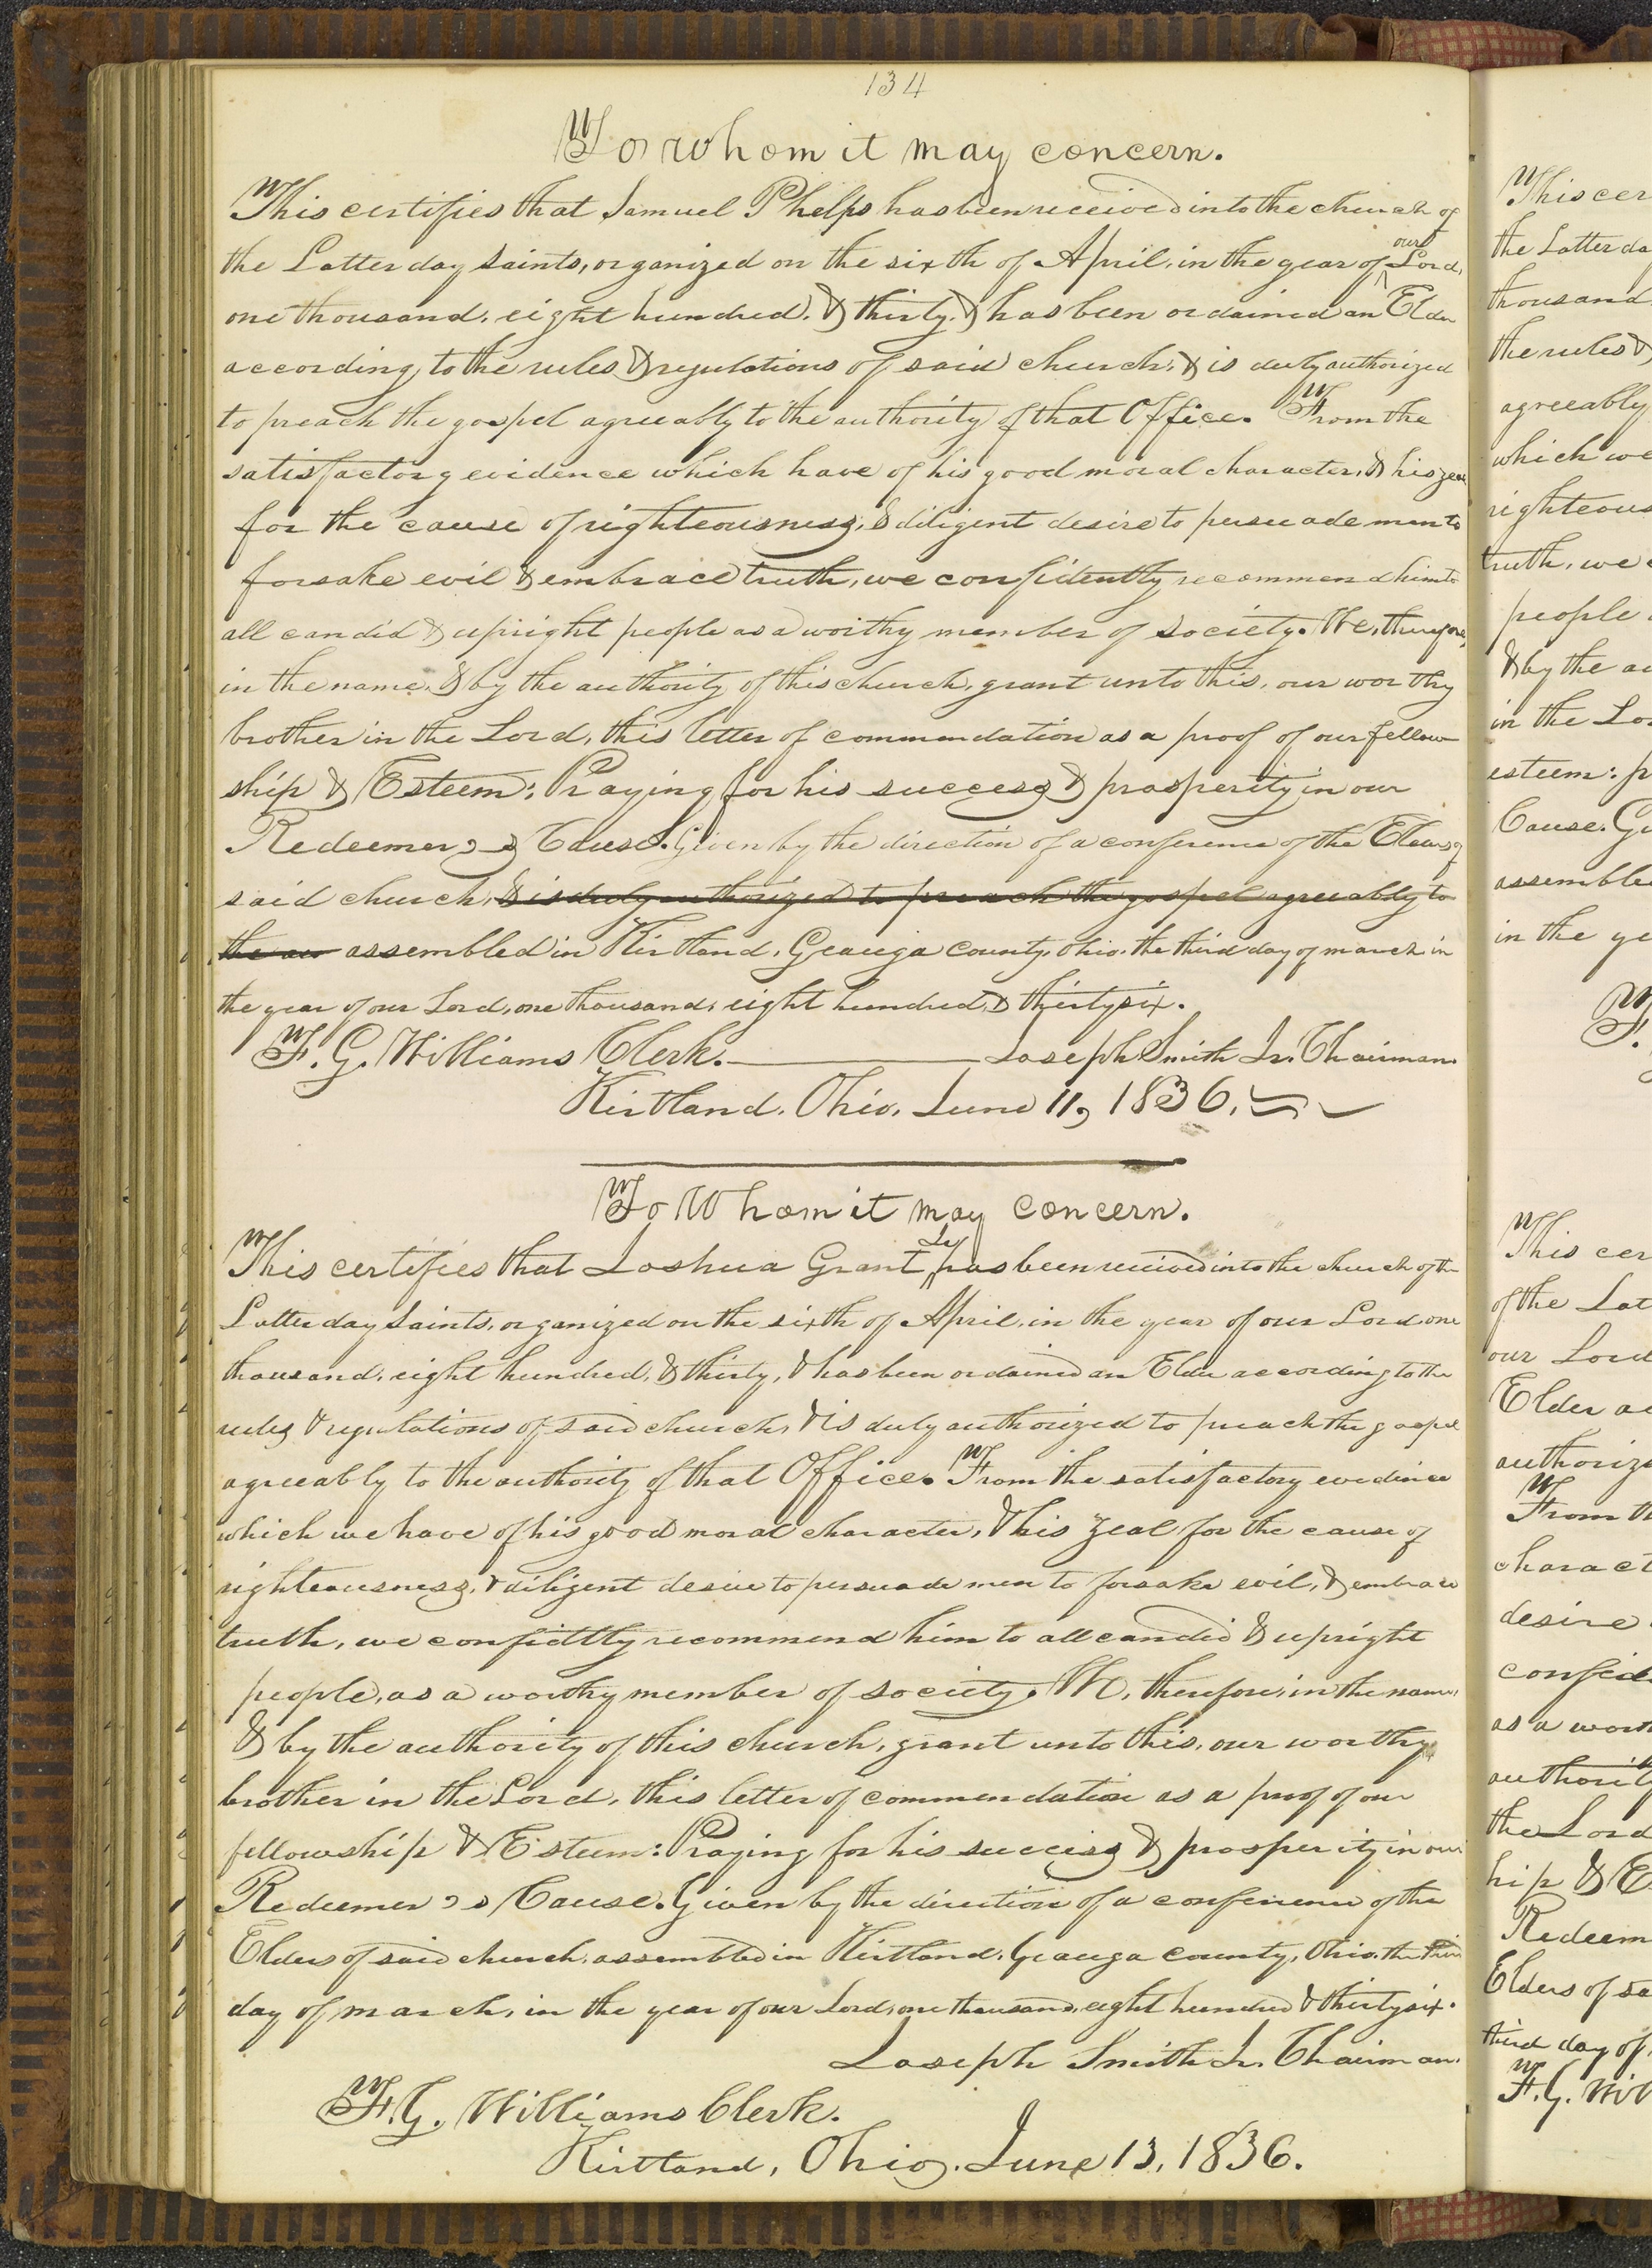 134
To Whom it may concern.
This certifies that Samuel Phelps has been received into the church of
the Latter day saints, organized on the sixth of April, in the year of our Lord,
one thousand, eight hundred, & thirty, & has been ordained an Elder
according to the rules & regulations of said church, & is duly authorized
to preach the gospel agreeably to the authority of that Office. From the
satisfactory evidence which have of his good moral character, & his zeal
for the cause of righteousness, & diligent desire to persuade men to
forsake evil & embrace truth, we confidently recommend him to
all candid & upright people as a worthy member of society. We, therefore,
in the name, & by the authority of this church, grant unto this, our worthy
brother in the Lord, this letter of commendation as a proof of our fellow
ship & Esteem: Praying for his success & prosperity in our
Redeemer's Cause. Given by the direction of a conference of the Elders of
said church, & is duly authorized to preach the gospel agreeably to
the au assembled in Kirtland, Geauga county, Ohio, the third day of march in
the year of our Lord, one thousand, eight hundred, & thirty six.
F. G. Williams Clerk. Joseph Smith Jr. Chairman.
Kirtland, Ohio, June 11, 1836.
To Whom it may concern.
This certifies that Joshua Grant Jr has been received into the church of the
Latter day Saints, organized on the sixth of April, in the year of our Lord one
thousand, eight hundred, & thirty, & has been ordained an Elder according to the
rules & regulations of said church, & is duly authorized to preach the gospel
agreeably to the authority of that Office. From the satisfactory evedince
which we have of his good moral character, & his zeal for the cause of
righteousness, & diligent desire to persuade men to forsake evil, & embrace
truth, we confidttly recommend him to all candid & upright
people, as a worthy member of society. We, therefore, in the name,
& by the authority of this church, grant unto this, our worthy
brother in the Lord, this letter of commendation as a proof of our
fellowship & Esteem: Praying for his success & prosperity in our
Redeemer's Cause. Given by the direction of a conference of the
Elders of said church, assembled in Kirtland, Geauga county, Ohio, the third
day of march, in the year of our Lord, one thousand, eight hundred & thirty six.
Joseph Smith Jr. Chairman.
F. G. Williams Clerk.
Kirtland, Ohio, June 13, 1836.
This cer
the Latter da
thousand
the rules &
agreeably
which we
righteous
truth, we
people
& by the au
in the Lo
esteem: p
Cause. Gi
assemble
in the ye
F.
This cer
of the Lat
our Lord
Elder ac
authoriz
From th
charact
desire
confid
as a wort
authority
the Lord
hip & E
Redeem
Elders of sa
third day of
F. G. Wil